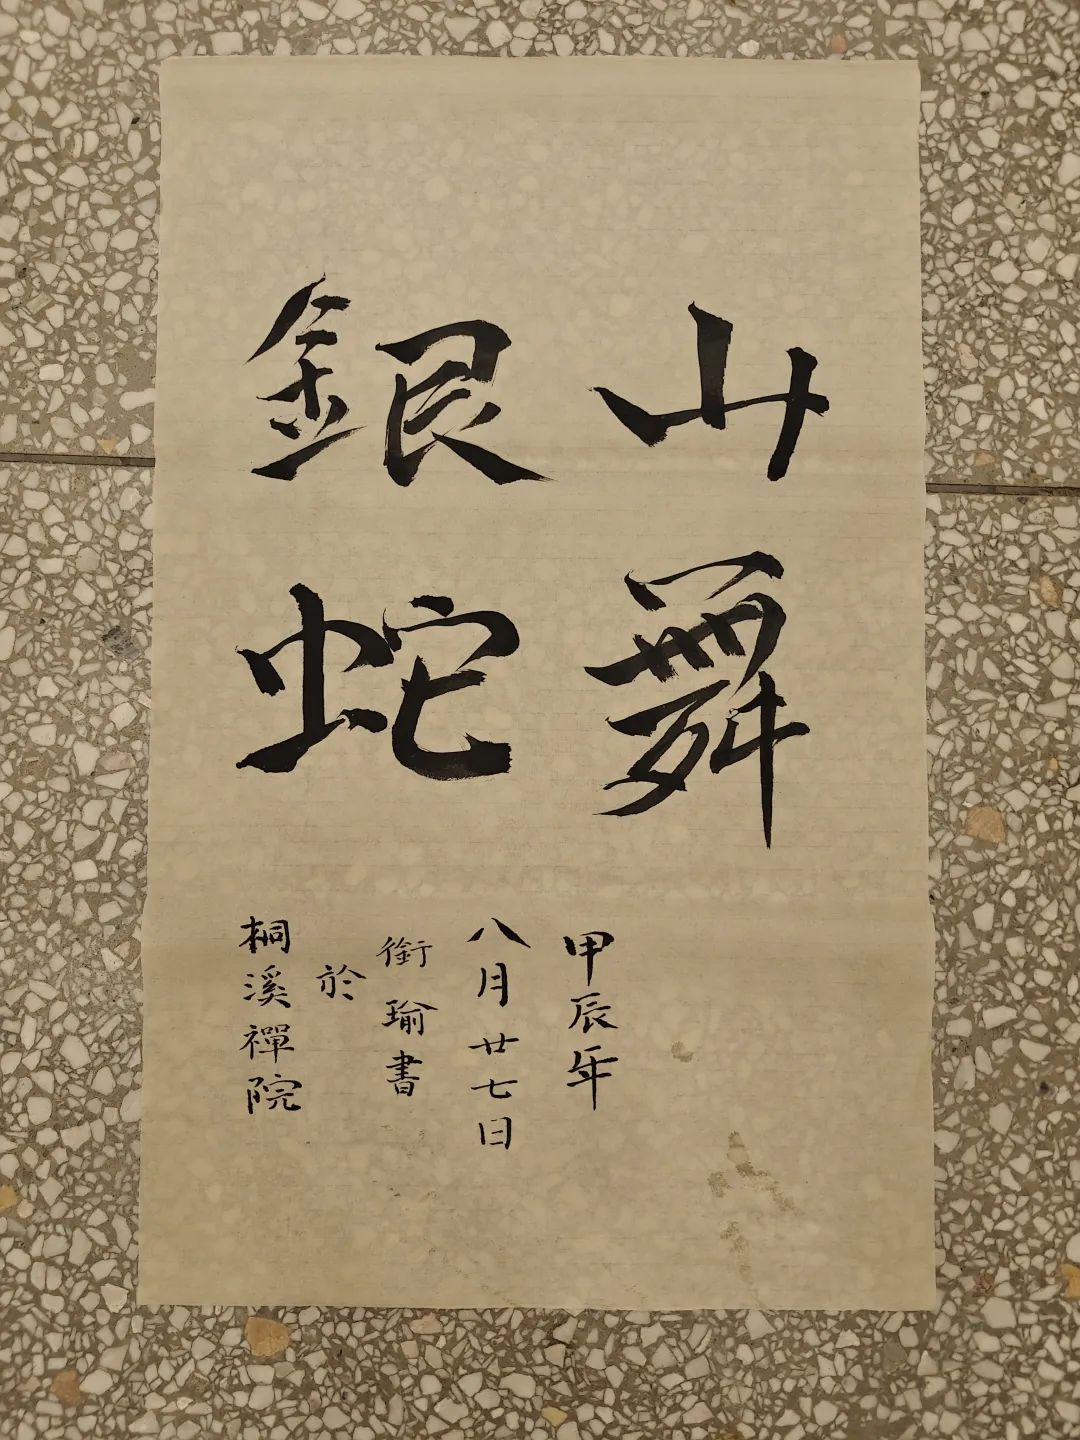 山舞
銀蛇
甲辰年
八月廿七日
銜瑜書
於
桐溪禪院